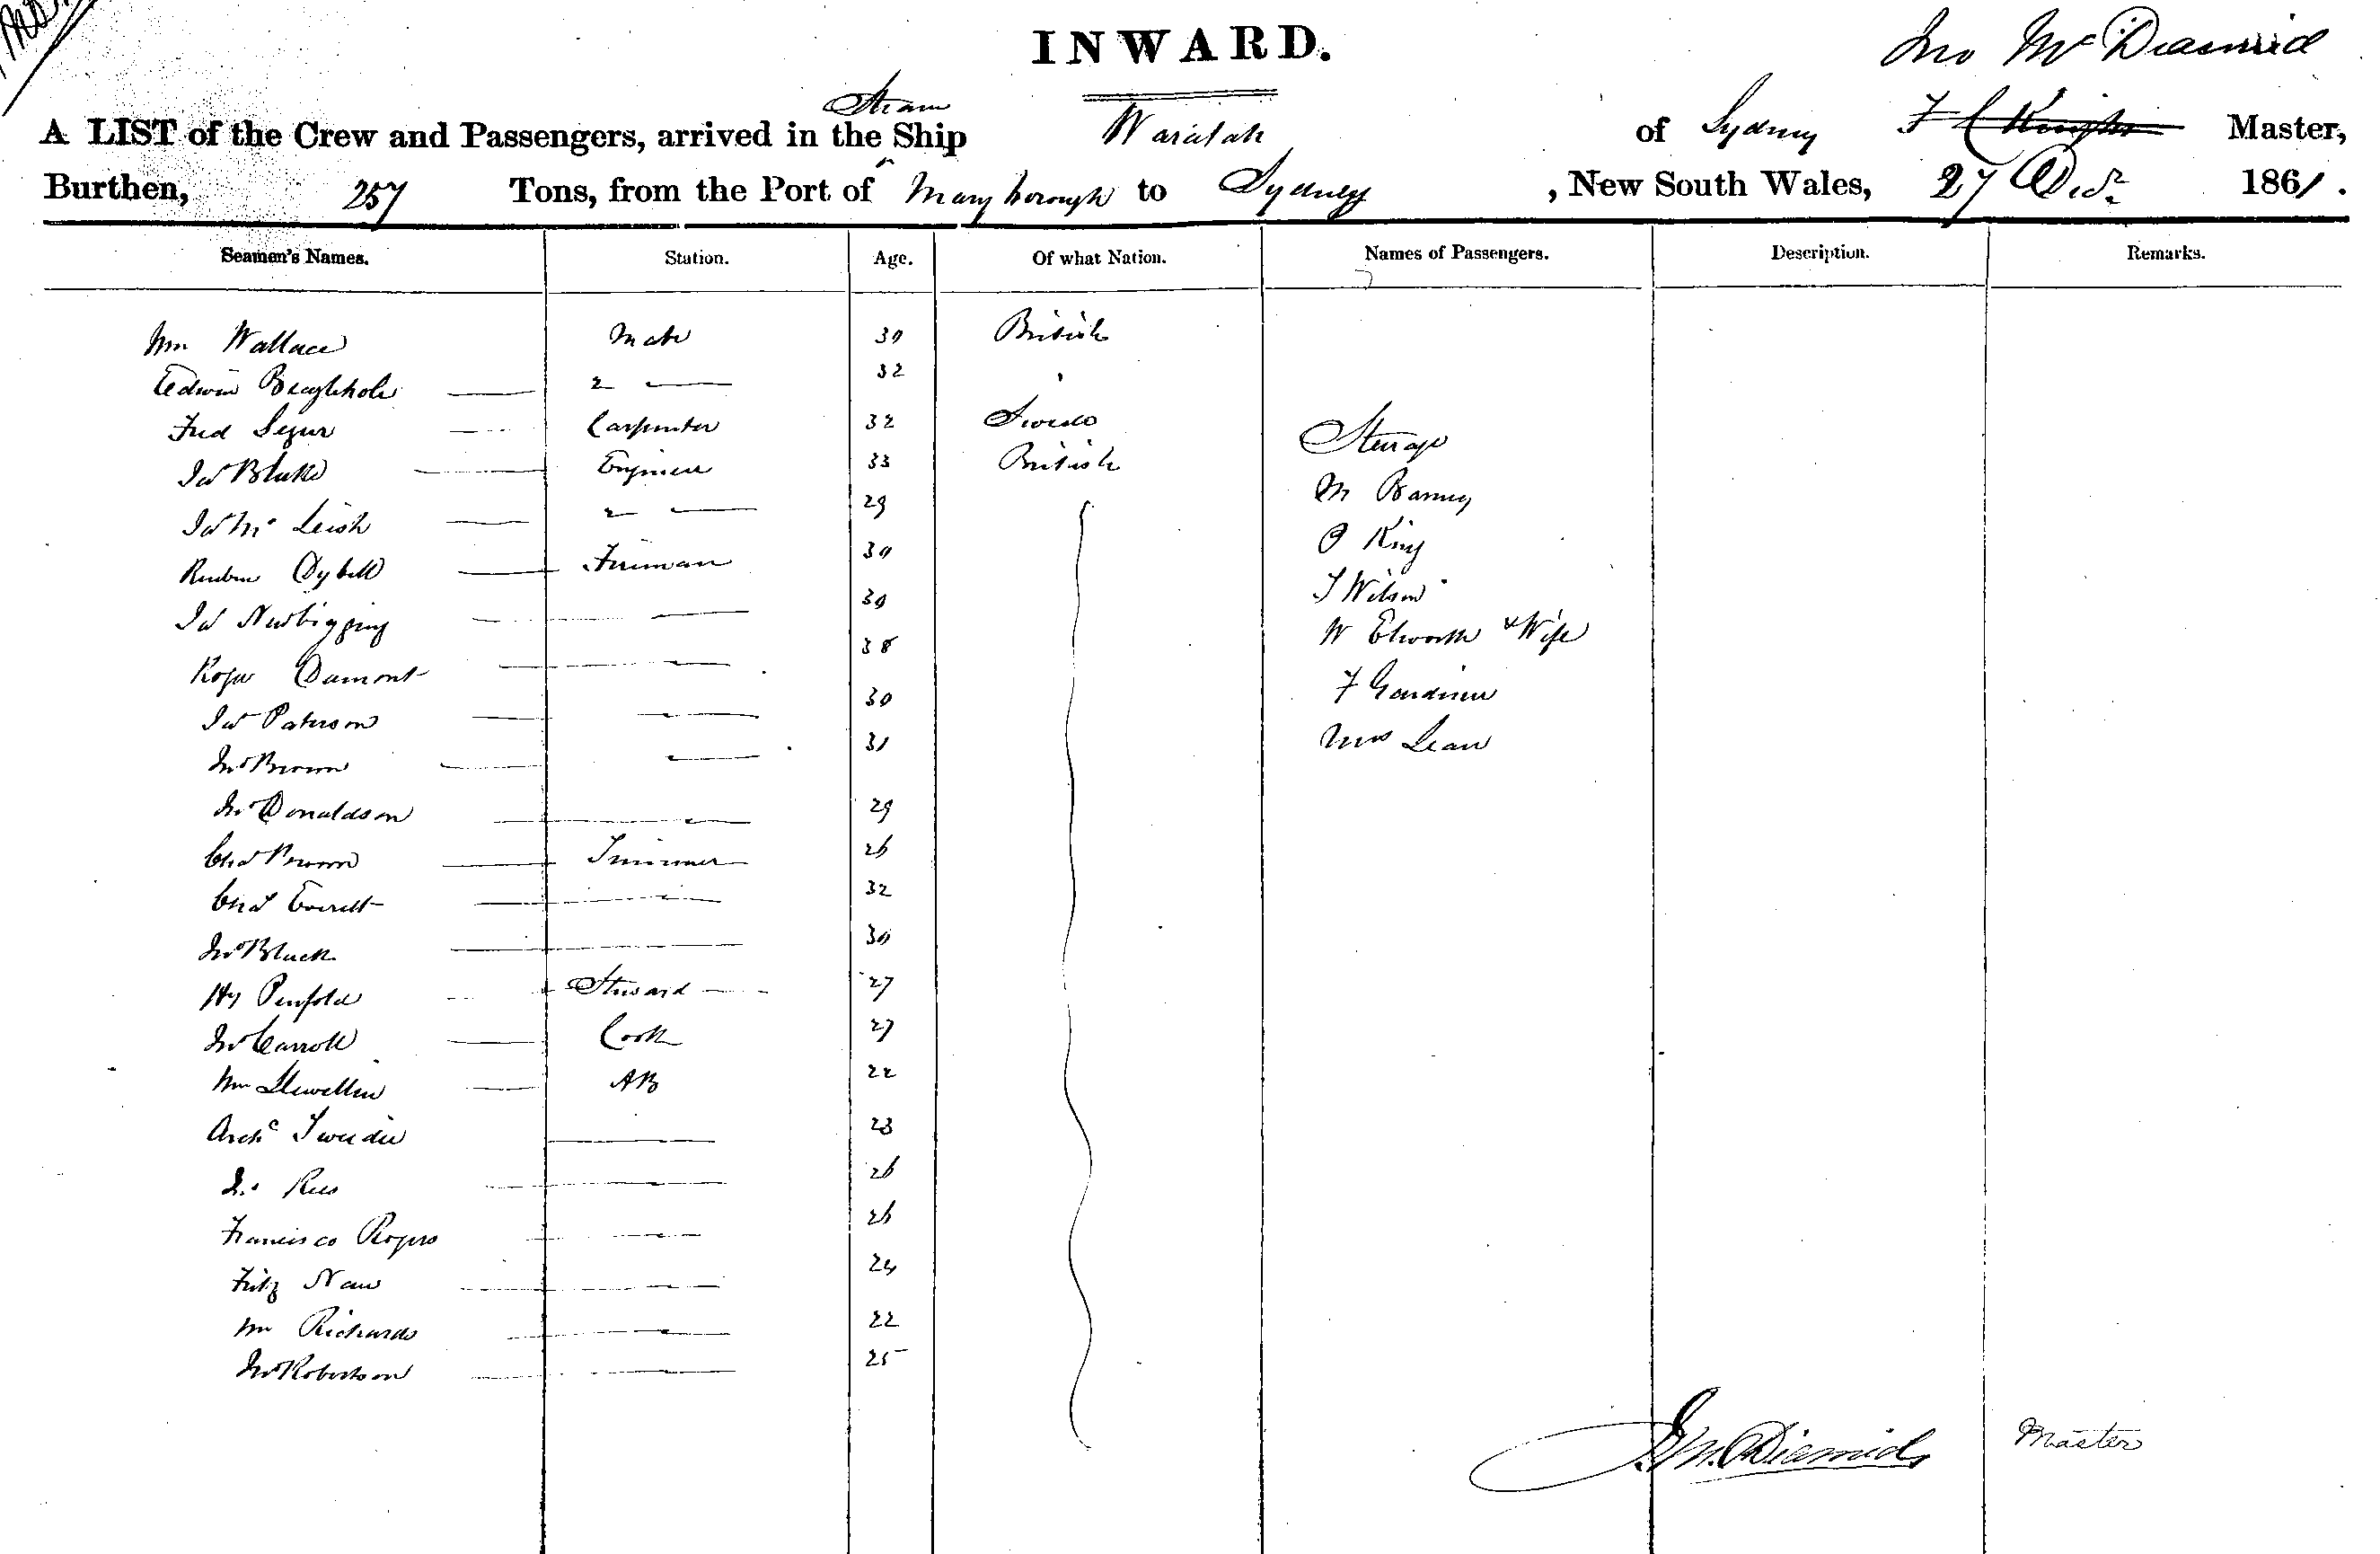 INWARD.
Jno McDiarmid
A LIST of the Crew and Passengers, arrived in the Steam Ship Waratah of Sydney F C Knight Master,
Burthen, 257 Tons, from the Port of Maryborough to Sydney, New South Wales, 27 Decr 1861.
Seamen's Names. Station. Age. Of what Nation. Names of Passengers. Description. Remarks.
Wm Wallace Mate 30 British
Edwin 2 32
Fred Carpenter 32 Swede
Jas Blake Engineer 33 British
Jas Mc Leish 2 29
Reuben Dybell Fireman 30
Jas Newbigging 39
Roger Dumont 38
Jas Paterson 30
Jno Brown 31
Jno Donaldson 29
Chas Brown Trimmer 26
Chas Everett 32
Jno Black 30
Hy Penfold Steward 27
Jno Carroll Cook 27
Wm Llewellin AB 22
Archd Tweedie 23
Jno Rees 26
Francisco Rogers 26
Fritz Nau 24
Wm Richards 22
Jno Robertson 25
Steerage
M Barney
P King
T Wilson
W Elworth & Wife
F Gardiner
Mrs Lean
J McDiarmid Master